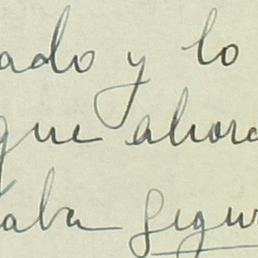 ado y lo
que ahora
aba segur